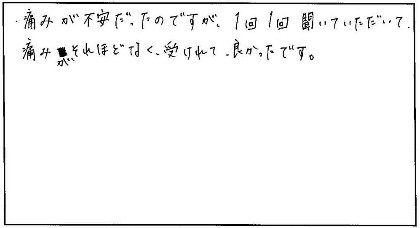 ・痛みが不安だったのですが、1回1回聞いていただいて、
痛みがそれほどなく、受けれて、良かったです。